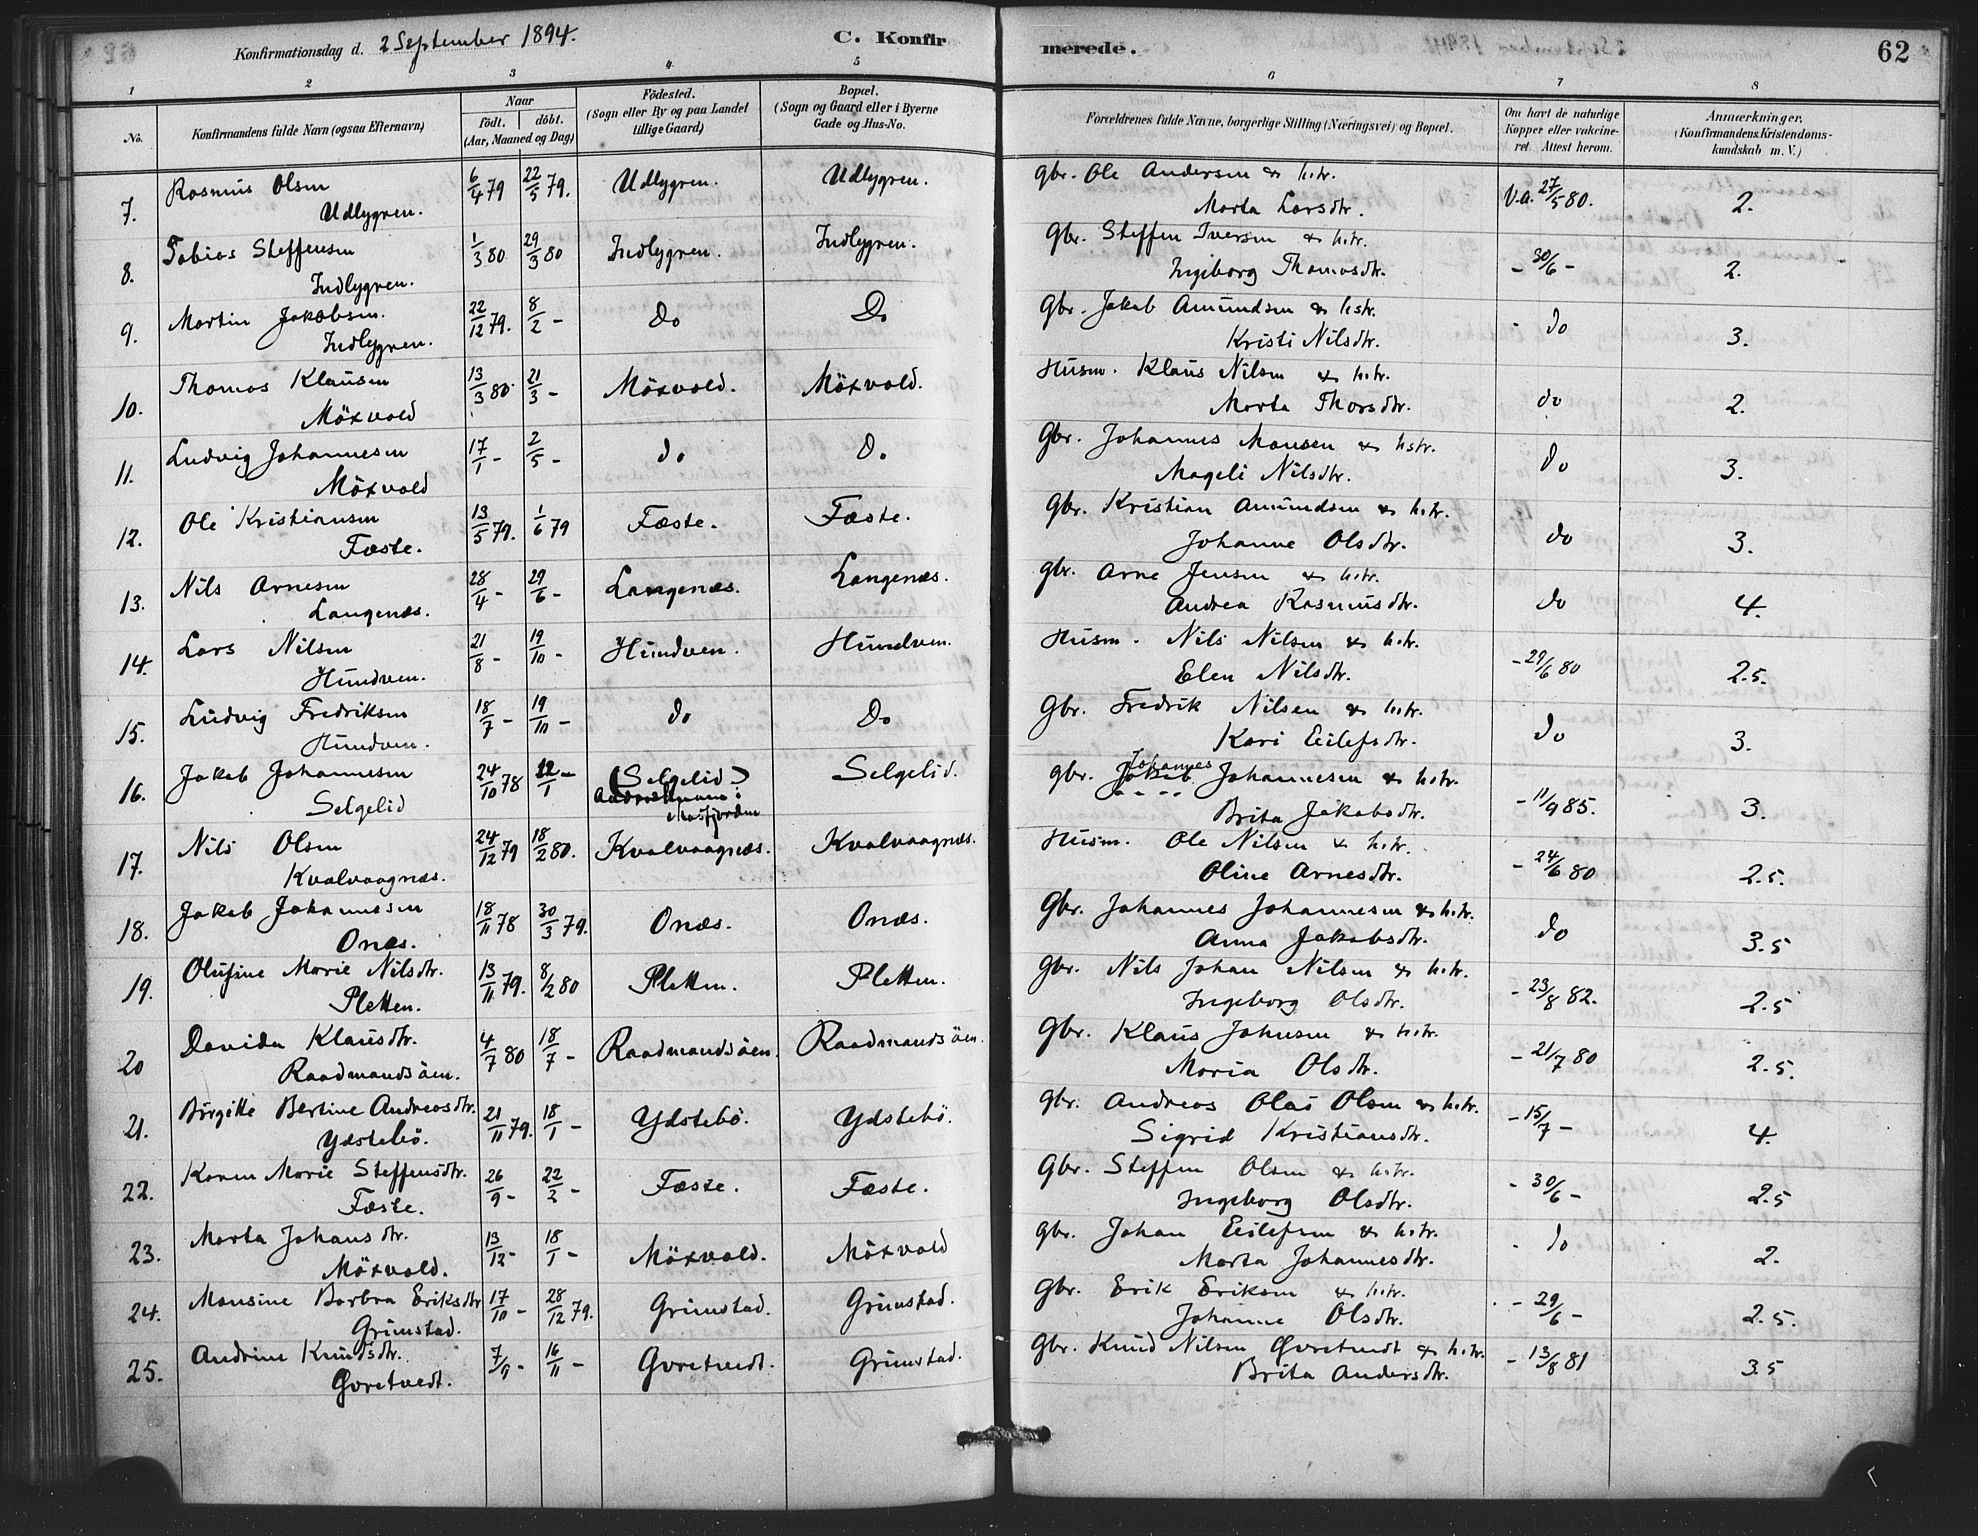 Konfirmationsdag d. 2 September 1894.
C. Konfirmerede.
62
1 2 3 4 5 6 7 8
No.
Konfirmandens fulde Navn (ogsaa Efternavn)
Naar
födt. döbt.
(Aar, Maaned og Dag)
Födested.
(Sogn eller By og paa Landet
tillige Gaard)
Bopæl.
(Sogn og Gaard eller i Byerne
Gade og Hus-No.
Forældrenes fulde Navne, borgerlige Stilling (Næringsvei) og Bopæl.
Om havt de naturlige
Kopper eller vakcine-
ret. Attest herom.
Anmærkninger.
(Konfirmandens Kristendoms-
kundskab m. V.)
7. Rasmus Olsen 6/4 79 22/5 79. Udlygren. Udlygren. Gbr. Ole Andersen & h.tr. V.a. 27/5 80. 2.
Udlygren. Marta Larsdtr.
8. Tobias Steffensen 1/3 80 29/3 80 Indlygren. Indlygren. Gbr. Steffen Iversen & h.tr. - 30/6 - 2.
Indlygren. Ingiborg Thomasdtr.
9. Martin Jakobsen. 22/12 79. 8/2 - do Do Gbr. Jakob Amundsen & hstr. - do 3.
Indlygren. Kristi Nilsdtr.
10. Thomas Klausen 13/3 80. 21/3 - Möxvold. Möxvold. Husm. Klaus Nilsen & h.tr. do 2.
Möxvold Marta Thorsdtr.
11. Ludvig Johannesen 17/1 - 2/5 - do Do Gbr. Johannes Monsen & hstr. do 3.
Möxvold Mageli Nilsdtr.
12. Ole Kristiansen 13/5 79. 1/6 79 Fæste. Fæste. Gbr. Kristian Amundsen & h.tr. do 3.
Fæste. Johanne Olsdtr.
13. Nils Arnesen 28/4 - 29/6 - Langenæs. Langenæs. Gbr. Arne Jensen & h.tr. do 4.
Langenæs. Andrea Rasmusdtr.
14. Lars Nilsen 21/8 - 19/10 - Hundven. Hundven. Husm. Nils Nilsen & h.tr. - 29/6 80 2.5.
Hundven. Elen Nilsdtr.
15. Ludvig Fredriksen 18/7 - 19/10 - do Do Gbr. Fredrik Nilsen & h.tr. do 3.
Hundven. Kari Eilefsdtr.
16. Jakob Johannesen 24/10 78 12/1 - (Selgelid?) Selgelid. Gbr. Johannes Johannesen & h.tr. - 11/9 85. 3.
Selgelid Masfjorden Brita Jakobsdtr.
17. Nils Olsen 24/12 79 18/2 80. Kvalvaagnæs. Kvalvaagnæs. Husm. Ole Nilsen & h.tr. - 24/6 80 2.5.
Kvalvaagnæs. Oline Arnesdtr.
18. Jakob Johannesen 18/11 78 30/3 79. Onæs. Onæs. Gbr. Johannes Johannesen & h.tr. do 3.5
Onæs. Anna Jakobsdtr.
19. Olufine Marie Nilsdtr. 13/11 79. 8/2 80 Pletten. Pletten. Gbr. Nils Johan Nilsen & h.tr. - 23/8 82. 2.5
Pletten. Ingeborg Olsdtr.
20 Davida Klausdtr. 4/7 80 18/7 - Raadmandsöen. Raadmandsöen. Gbr. Klaus Johnsen & h.tr. - 21/7 80 2.5.
Raadmandsöen. Maria Olsdtr.
21. Birgitte Bertine Andreasdtr. 21/11 79. 18/1 - Ydstebö. Ydstebö. Gbr. Andreas Olai Olsen & h.tr. - 15/7 - 4.
Ydstebö. Sigrid Kristiansdtr.
22. Karen Marie Steffensdtr. 26/9 - 22/2 - Fæste. Fæste. Gbr. Steffen Olsen & h.tr. - 30/6 - 2.5
Fæste. Ingeborg Olsdtr.
23. Marta Johansdtr. 13/12 - 18/1 - Möxvold. Möxvold Gbr. Johan Eilefsen & h.tr. - do 2.
Möxvold. Marta Johannesdtr.
24. Monsine Barbra Eriksdtr 17/10 - 28/12 79. Grimstad. Grimstad. Gbr. Erik Eriksen & h.tr. - 29/6 - 2.5.
Grimstad. Johanne Olsdtr.
25. Andrine Knudsdtr. 7/9 - 16/11 - Qvretvedt. Grimstad. Gbr. Knud Nilsen Qvretvedt & h.tr. - 13/8 81 3.5
Qvretvedt. Brita Andersdtr.